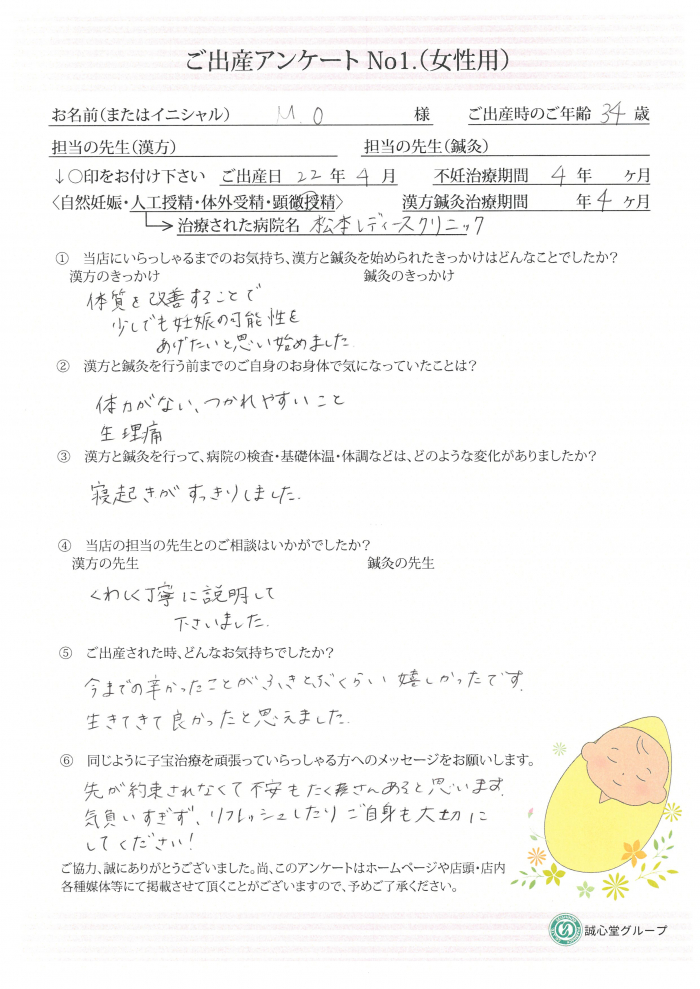 ご出産アンケート No1.(女性用)
お名前(またはイニシャル) M.O 様 ご出産時のご年齢 34 歳
担当の先生(漢方) 担当の先生(鍼灸)
↓○印をお付け下さい ご出産日 22 年 4 月 不妊治療期間 4 年 ヶ月
〈自然妊娠・人工授精・体外受精・顕微授精〉 漢方鍼灸治療期間 年 4 ヶ月
治療された病院名 松本レディースクリニック
① 当店にいらっしゃるまでのお気持ち、漢方と鍼灸を始められたきっかけはどんなことでしたか?
漢方のきっかけ 鍼灸のきっかけ
体質を改善することで
少しでも妊娠の可能性を
あげたいと思い始めました
② 漢方と鍼灸を行う前までのご自身のお身体で気になっていたことは?
体力がない、つかれやすいこと
生理痛
③ 漢方と鍼灸を行って、病院の検査・基礎体温・体調などは、どのような変化がありましたか?
寝起きがすっきりしました.
④ 当店の担当の先生とのご相談はいかがでしたか?
漢方の先生 鍼灸の先生
くわしく丁寧に説明して
下さいました.
⑤ ご出産された時、どんなお気持ちでしたか?
今までの辛かったことがふきとぶくらい嬉しかったです.
生きてきて良かったと思えました.
⑥ 同じように子宝治療を頑張っていらっしゃる方へのメッセージをお願いします。
先が約束されなくて不安もたくさんあると思います.
気負いすぎず、リフレッシュしたりご自身も大切に
してください!
ご協力、誠にありがとうございました。尚、このアンケートはホームページや店頭・店内
各種媒体等にて掲載させて頂くことがございますので、予めご了承ください。
誠心堂グループ